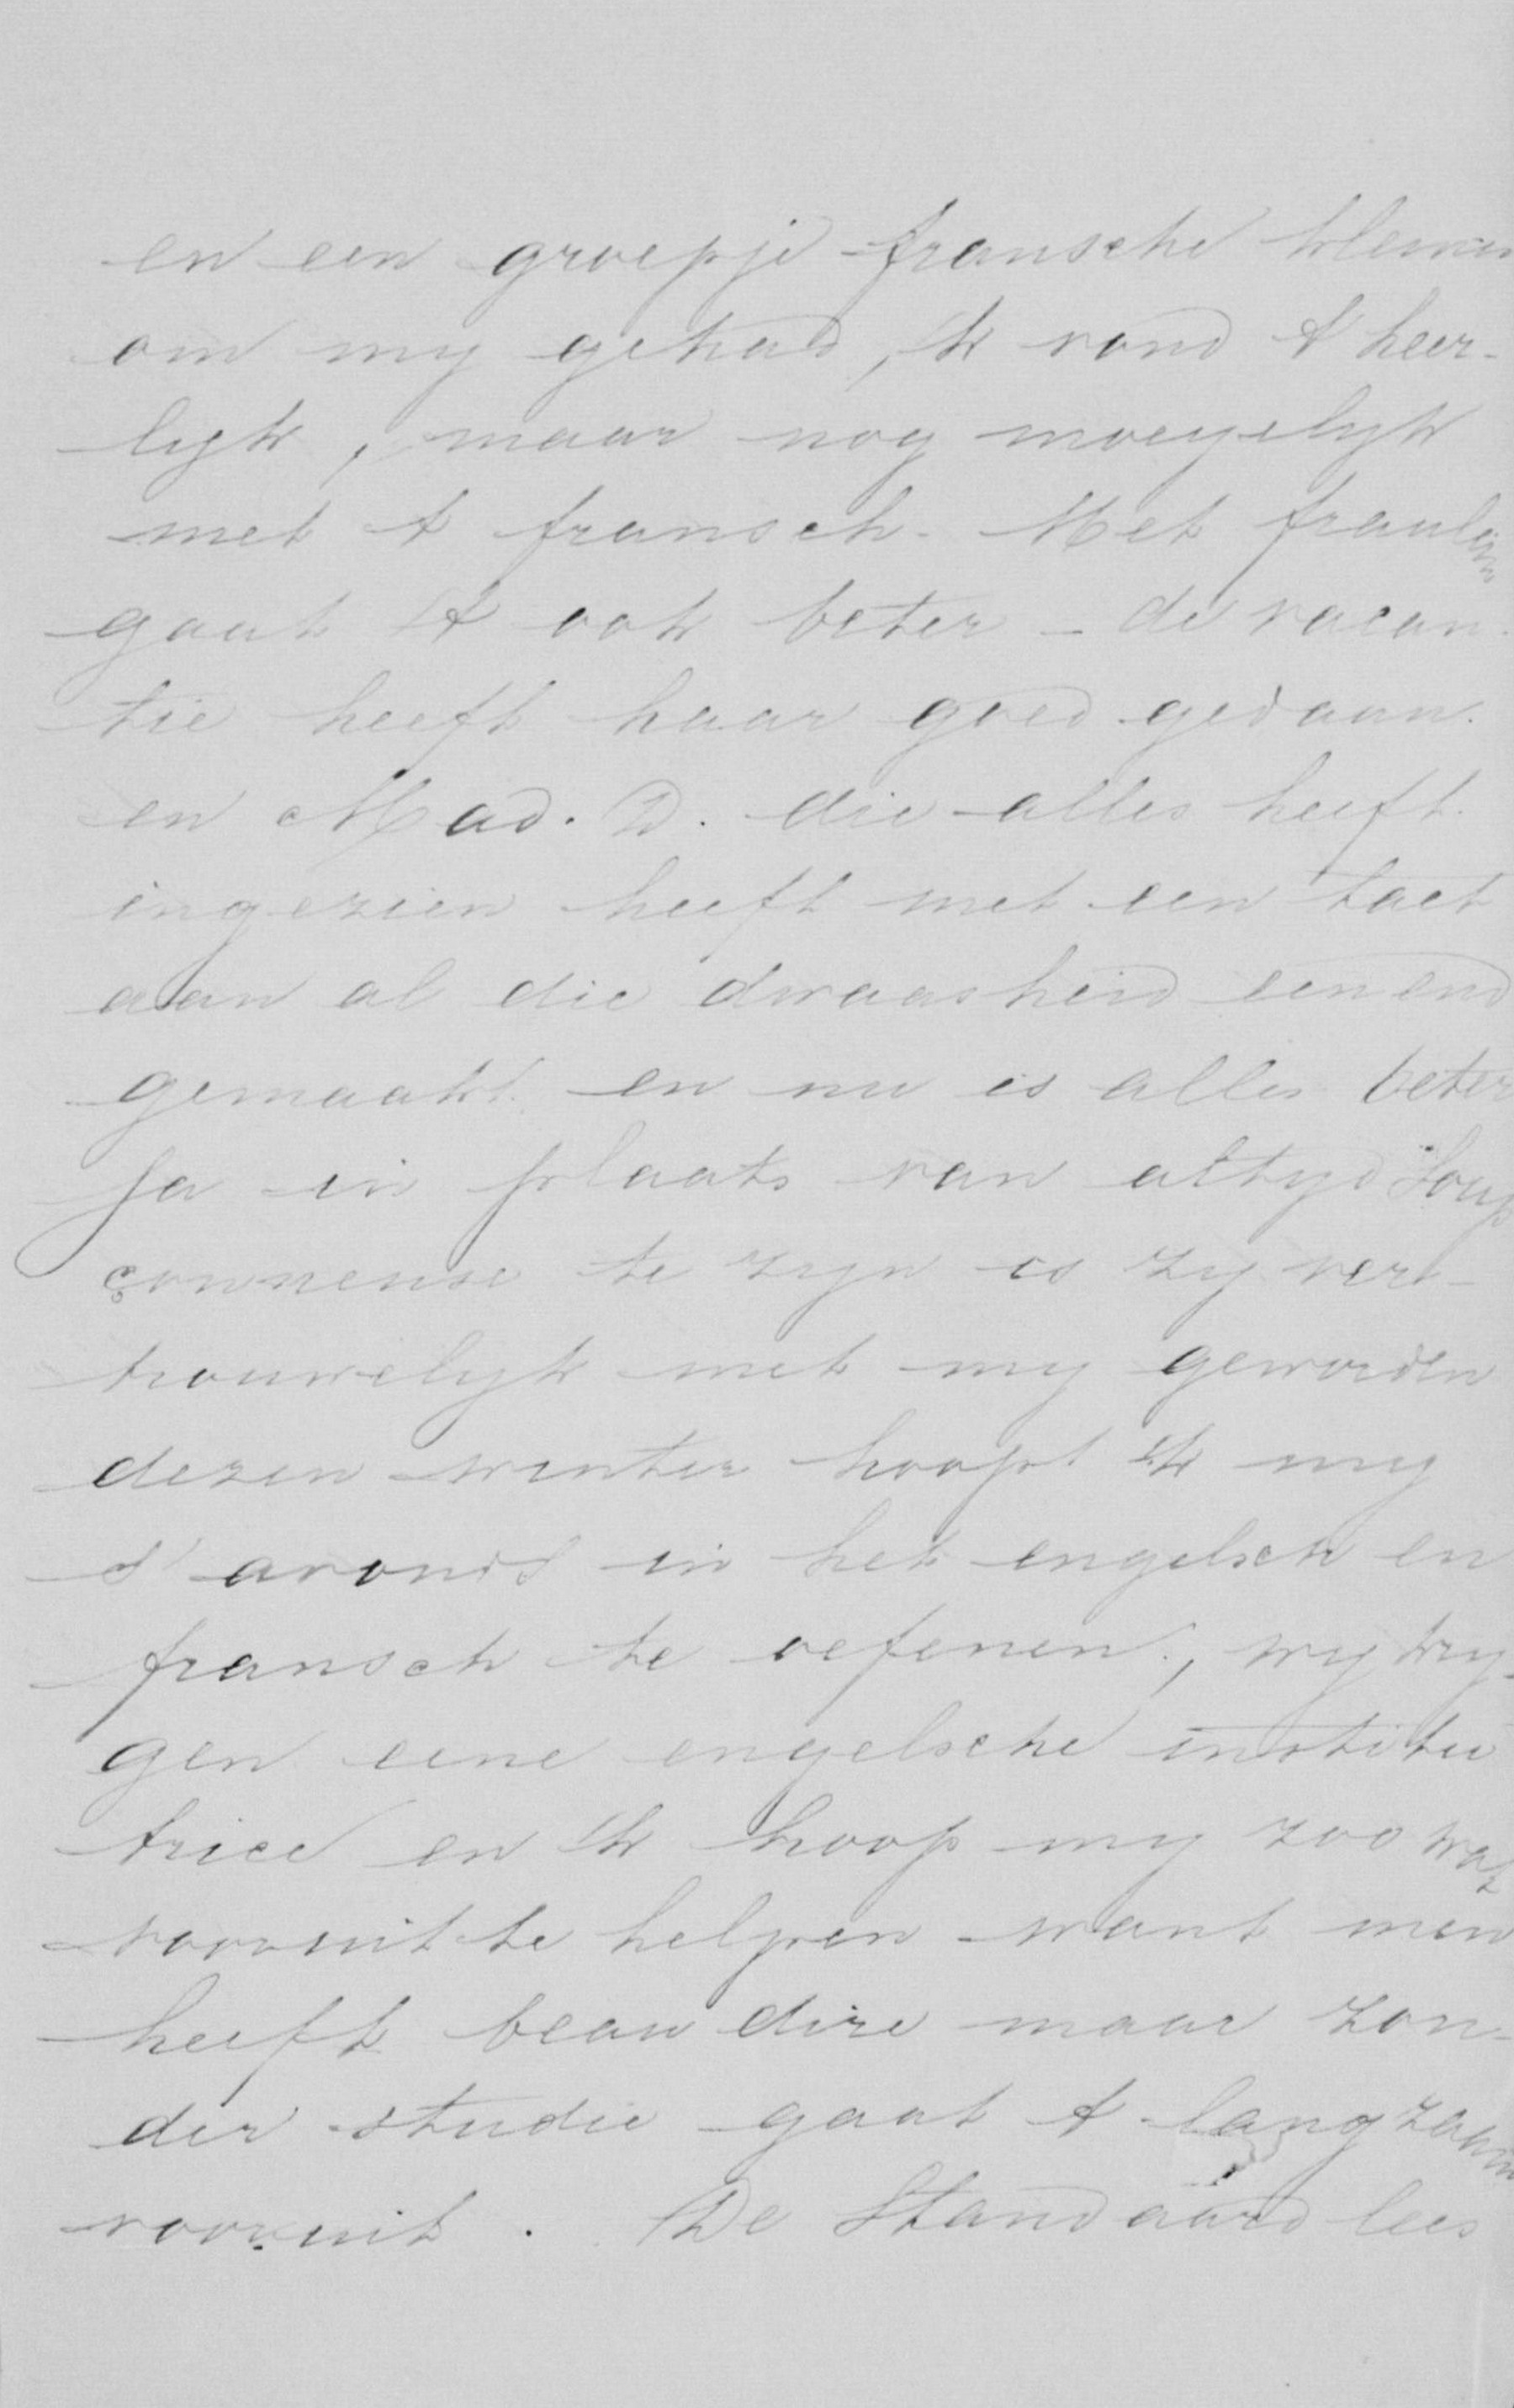 en een groepje fransche kleinen
om my gehad, ik vond 't heer-
lyk, maar nog moeyelyk
met 't fransch. Met fraulein
gaat 't ook beter - de vacan-
tie heeft haar goed gedaan.
en Mad. D. die alles heeft
ingezien heeft met een tact
aan al die dwaasheid een end
gemaakt en nu is alles beter
Ja in plaats van altyd soup
çonneuse te zyn is zy ver-
trouwelyk met my geworden
dezen winter hoop ik my
s'avonds in het engelsch en
fransch te oefenen, wy kry-
gen eene engelsche institu
trice en ik hoop my zoo wat
vooruit te helpen want men
heeft beau dire maar zon-
der studie gaat 't langzaam
vooruit. De Standaard lees